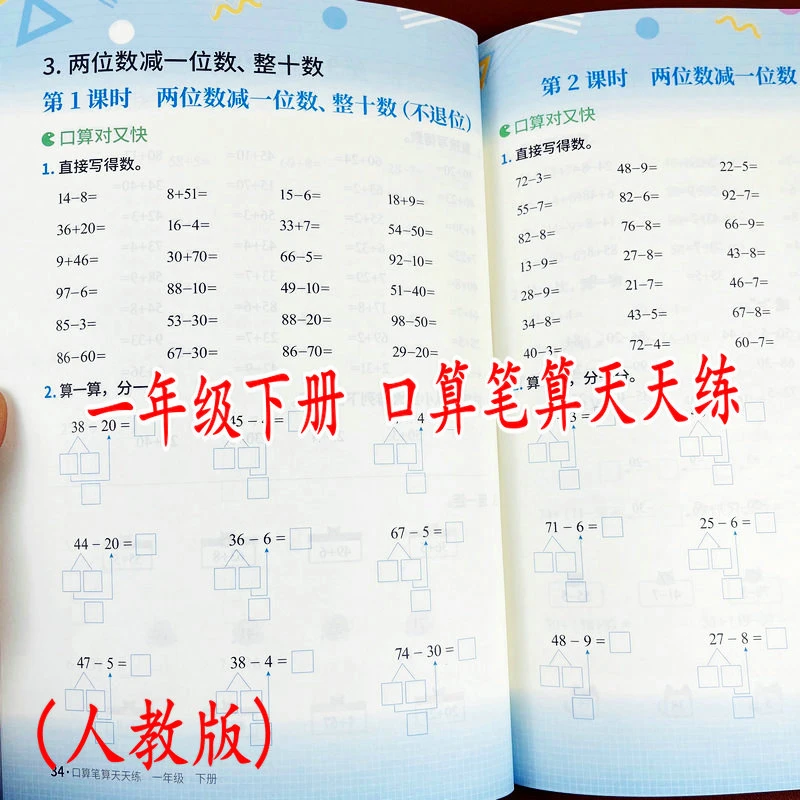 3. 两位数减一位数、整十数
第1课时 两位数减一位数、整十数(不退位)
口算对又快
1. 直接写得数。
14−8= 8+51= 15−6= 18+9=
36+20= 16−4= 33+7= 54−50=
9+46= 30+70= 66−5= 92−10=
97−6= 88−10= 49−10= 51−40=
85−3= 53−30= 88−20= 98−50=
86−60= 67−30= 86−70= 29−20=
2. 算一算,分一
38−20=
44−20= 36−6= 67−5=
47−5= 38−4= 74−30=
34·口算笔算天天练 一年级 下册
第2课时 两位数减一位数
口算对又快
1. 直接写得数。
72−3= 48−9= 22−5=
55−7= 82−6= 92−7=
82−8= 76−8= 66−9=
13−9= 27−8= 43−8=
28−9= 21−7= 46−7=
34−8= 43−5= 67−8=
40−3= 72−4= 60−7=
71−6= 25−6=
48−9= 27−8=
一年级下册 口算笔算天天练
(人教版)